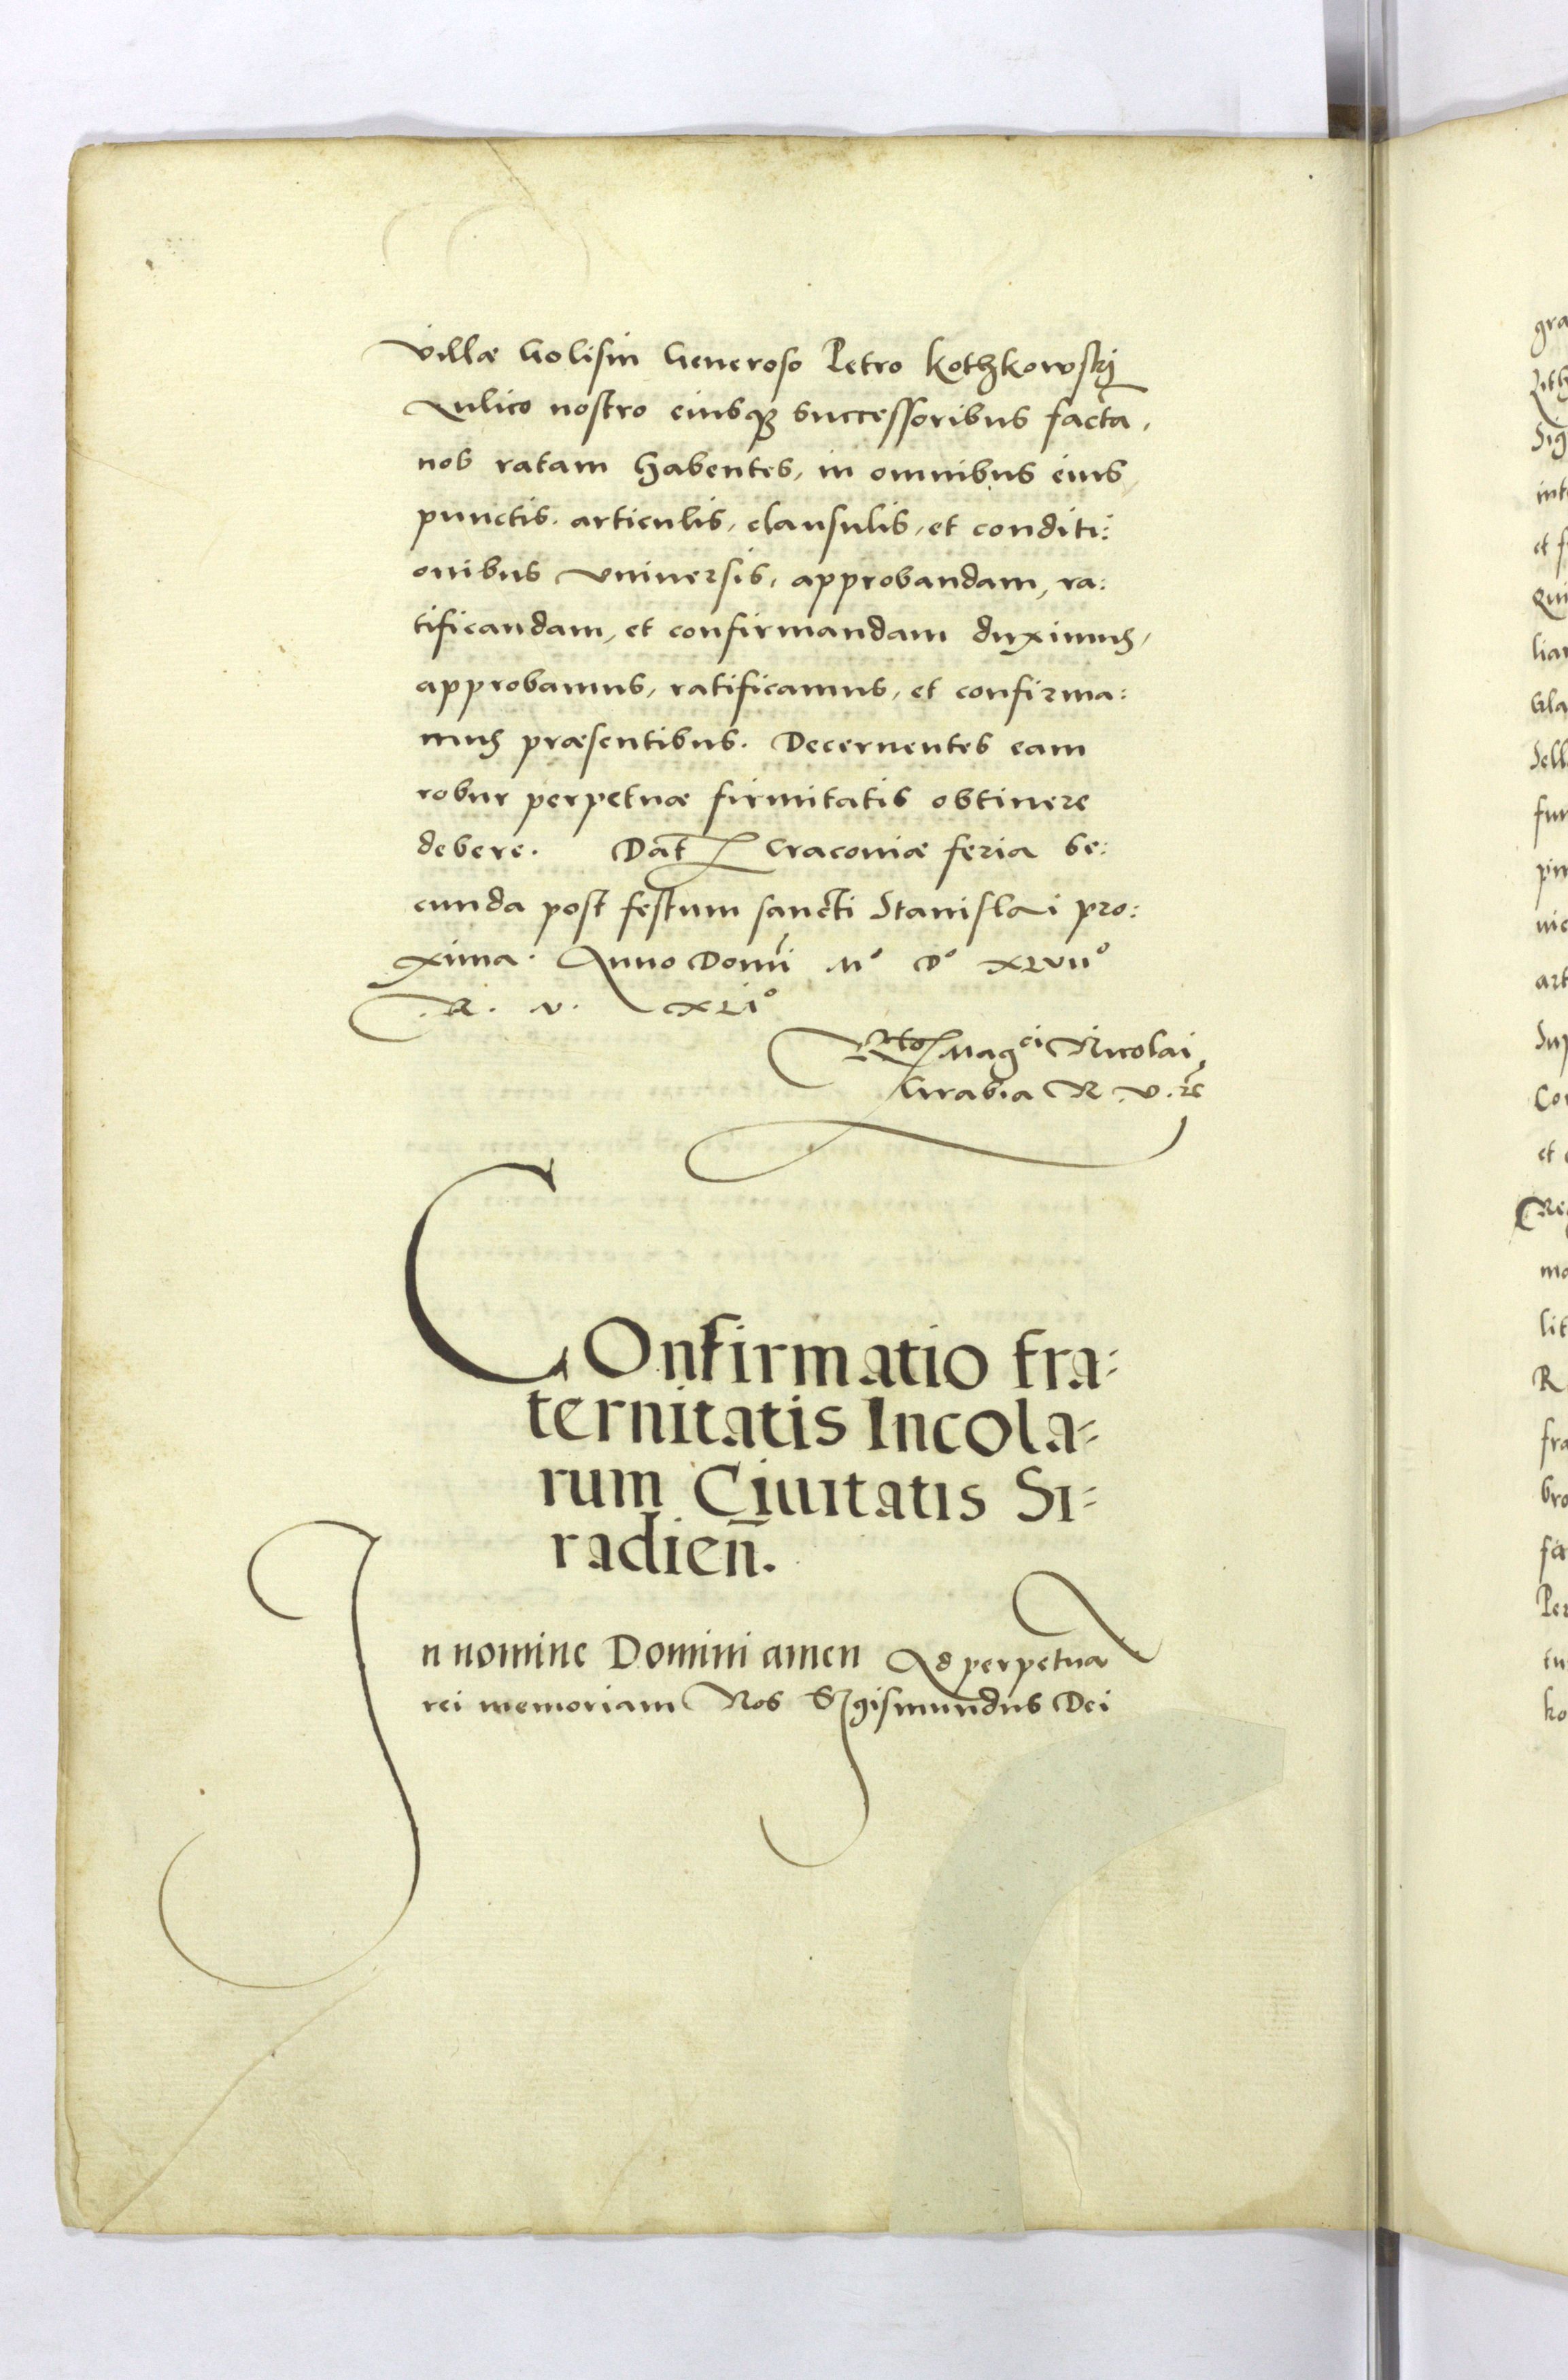 villæ Golisin Generoso Petro Kothkowskj
Aulico nostro eiusq3 successoribus facta,
nos ratam habentes, in omnibus eius
punctis, articulis, clausulis, et conditi:
onibus vniuersis, approbandam, ra:
tificandam, et confirmandam duximus,
approbamus, ratificamus, et confirma:
mus præsentibus. Decernentes eam
robur perpetuæ firmitatis obtinere
debere. Dat Cracoviæ feria se:
cunda post festum sancti Stanislai pro:
xima. Anno Domi M° D° XLVII°
R. N. XLI°
Rto Magci Nicolai
Grabia R. V. rc
COnfirmatio fra=
ternitatis Incola=
rum Ciuitatis Si=
radien̄.
In nomine Domini amen Ad perpetua
rei memoriam Nos Sigismundus Dei
gra
Sig
int
et f
Qui
lia
Gla
Sell
fun
pin
art
Sup
Co
et
Re
mo
lit
R
fra
bro
fa
Per
tu
ko